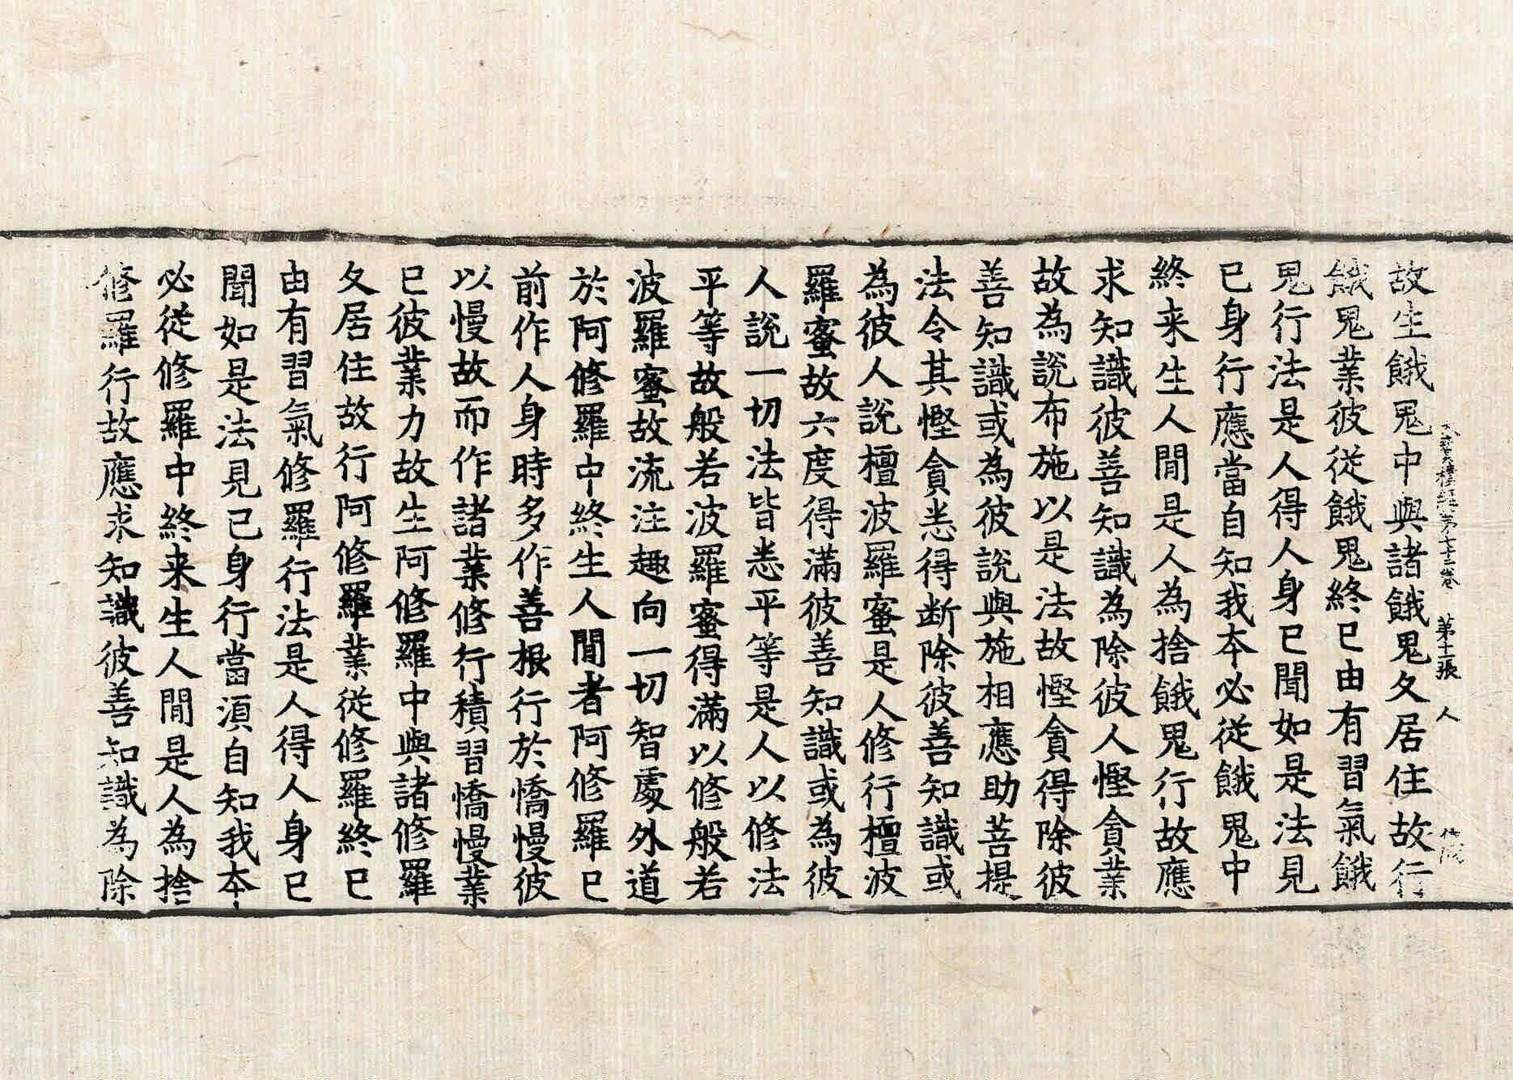 大寶積經第七十三卷 第十一張 人
故生餓鬼中與諸餓鬼久居住故行
餓鬼業彼從餓鬼終已由有習氣餓
鬼行法是人得人身已聞如是法見
已身行應當自知我本必從餓鬼中
終来生人間是人為捨餓鬼行故應
求知識彼善知識為除彼人慳貪業
故為說布施以是法故慳貪得除彼
善知識或為彼說與施相應助菩提
法令其慳貪悉得断除彼善知識或
為彼人說檀波羅蜜是人修行檀波
羅蜜故六度得滿彼善知識或為彼
人說一切法皆悉平等是人以修法
平等故般若波羅蜜得滿以修般若
波羅蜜故流注趣向一切智處外道
於阿修羅中終生人間者阿修羅已
前作人身時多作善根行於憍慢彼
以慢故而作諸業修行積習憍慢業
已彼業力故生阿修羅中與諸修羅
久居住故行阿修羅業從修羅終已
由有習氣修羅行法是人得人身已
聞如是法見已身行當須自知我本
必從修羅中終来生人間是人為捨
修羅行故應求知識彼善知識為除